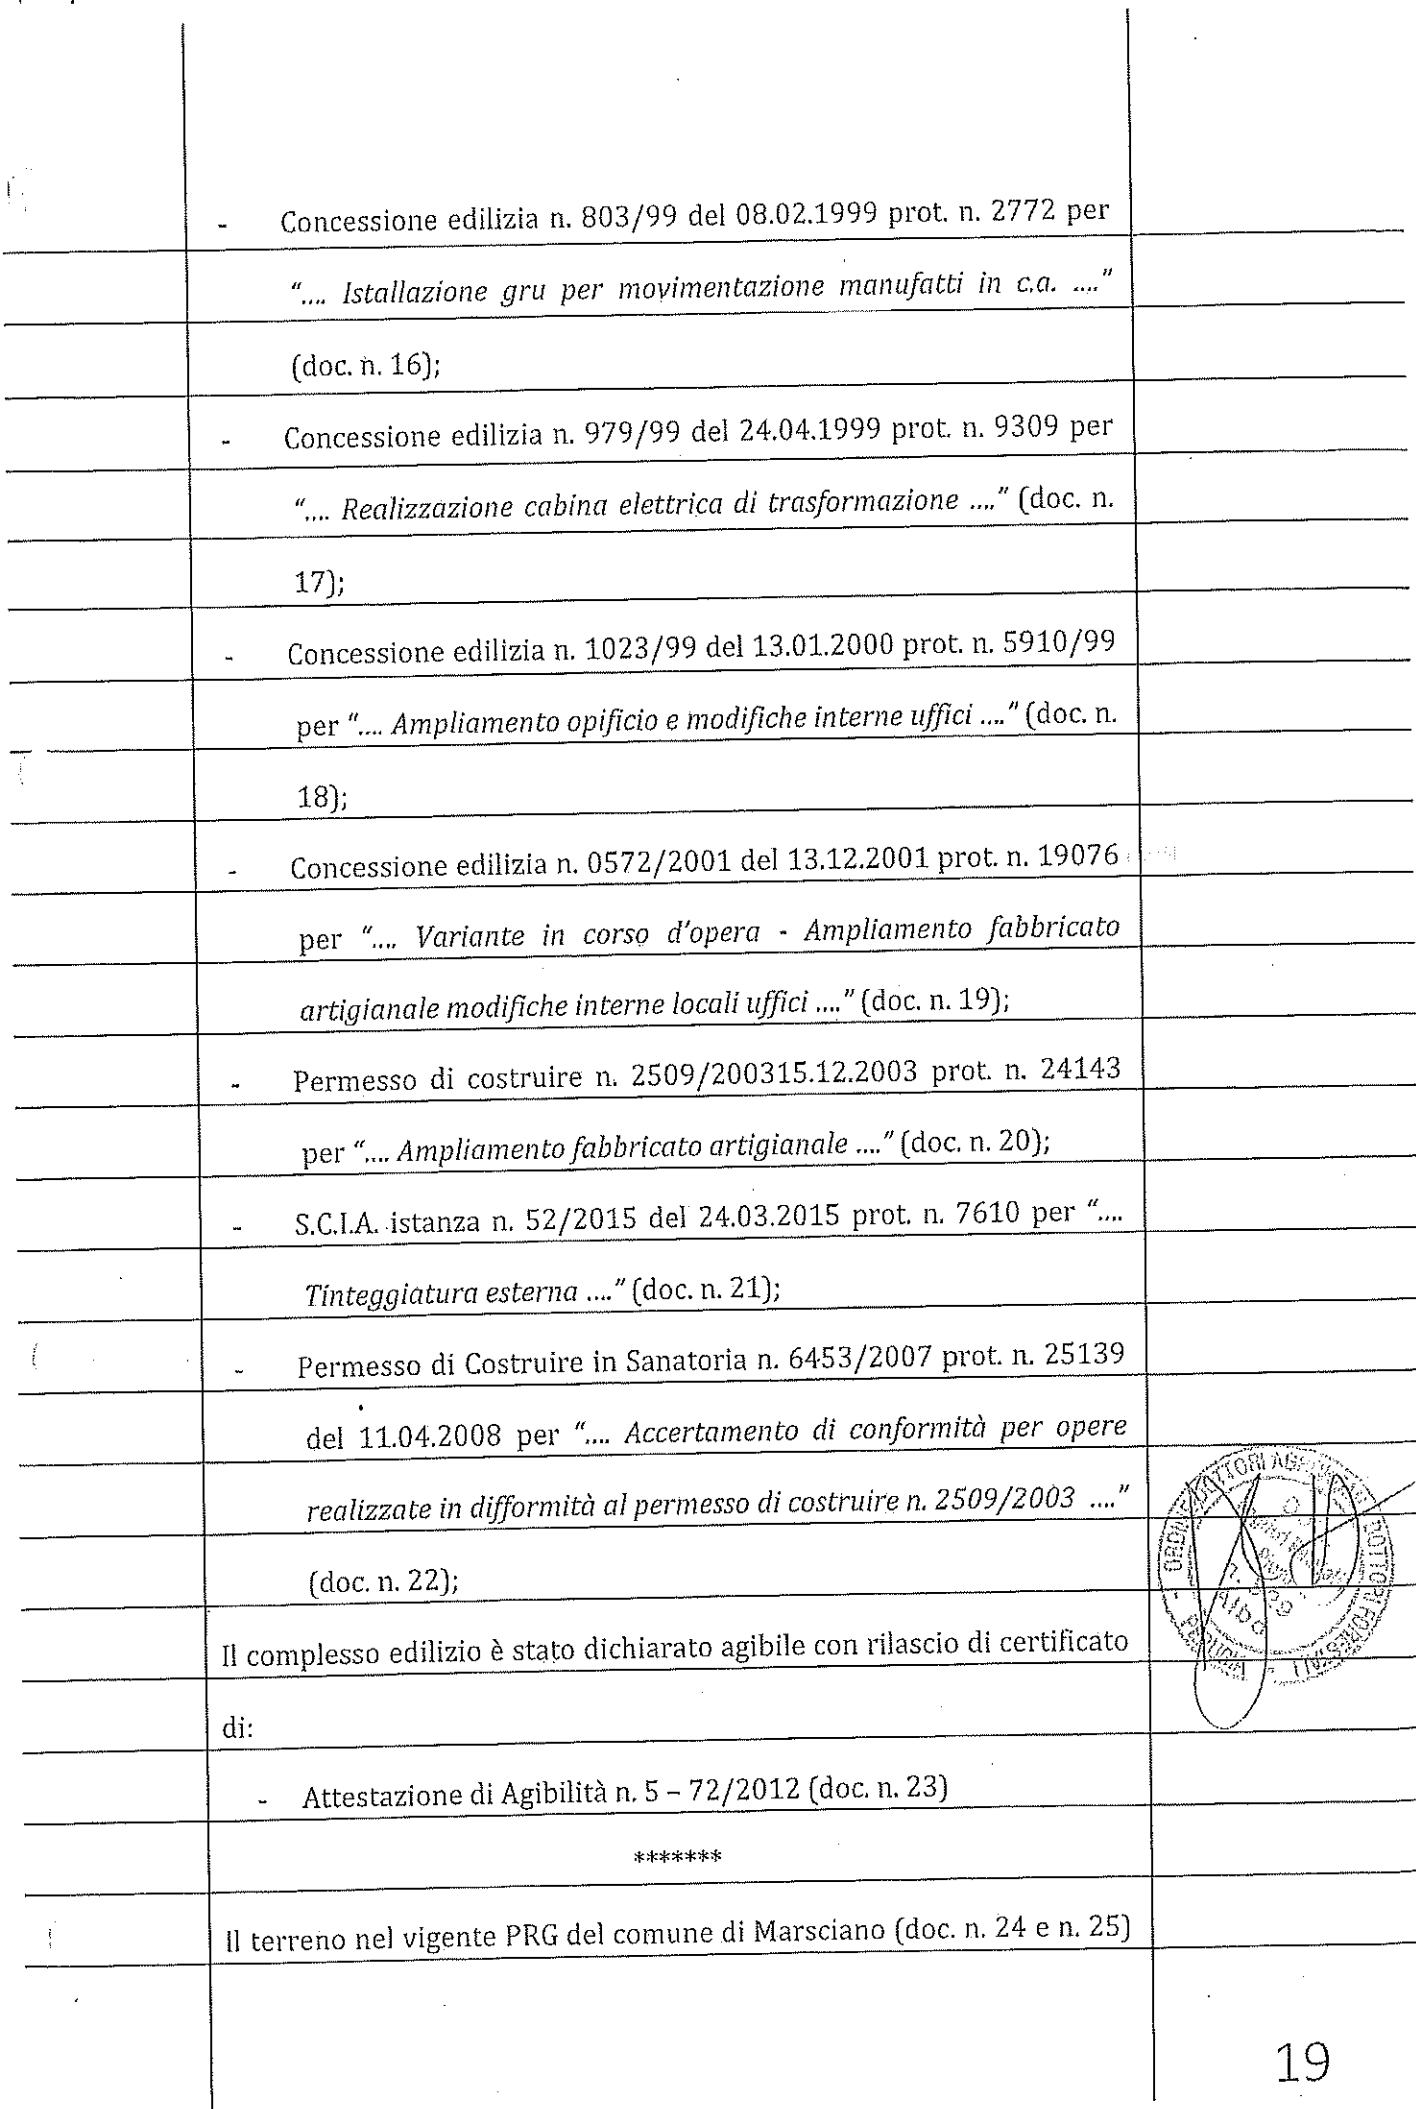 - Concessione edilizia n. 803/99 del 08.02.1999 prot. n. 2772 per
“.... Istallazione gru per movimentazione manufatti in c.a. ....”
(doc. n. 16);
- Concessione edilizia n. 979/99 del 24.04.1999 prot. n. 9309 per
“.... Realizzazione cabina elettrica di trasformazione ....” (doc. n.
17);
- Concessione edilizia n. 1023/99 del 13.01.2000 prot. n. 5910/99
per “.... Ampliamento opificio e modifiche interne uffici ....” (doc. n.
18);
- Concessione edilizia n. 0572/2001 del 13.12.2001 prot. n. 19076
per “.... Variante in corso d’opera - Ampliamento fabbricato
artigianale modifiche interne locali uffici ....” (doc. n. 19);
- Permesso di costruire n. 2509/200315.12.2003 prot. n. 24143
per “.... Ampliamento fabbricato artigianale ....” (doc. n. 20);
- S.C.I.A. istanza n. 52/2015 del 24.03.2015 prot. n. 7610 per “....
Tinteggiatura esterna ....” (doc. n. 21);
- Permesso di Costruire in Sanatoria n. 6453/2007 prot. n. 25139
del 11.04.2008 per “.... Accertamento di conformità per opere
realizzate in difformità al permesso di costruire n. 2509/2003 ....”
(doc. n. 22);
Il complesso edilizio è stato dichiarato agibile con rilascio di certificato
di:
- Attestazione di Agibilità n. 5 – 72/2012 (doc. n. 23)
*******
Il terreno nel vigente PRG del comune di Marsciano (doc. n. 24 e n. 25)
ORDINE DOTTORI
DOTTORI FORESTALI
PERUGIA
Albo
19